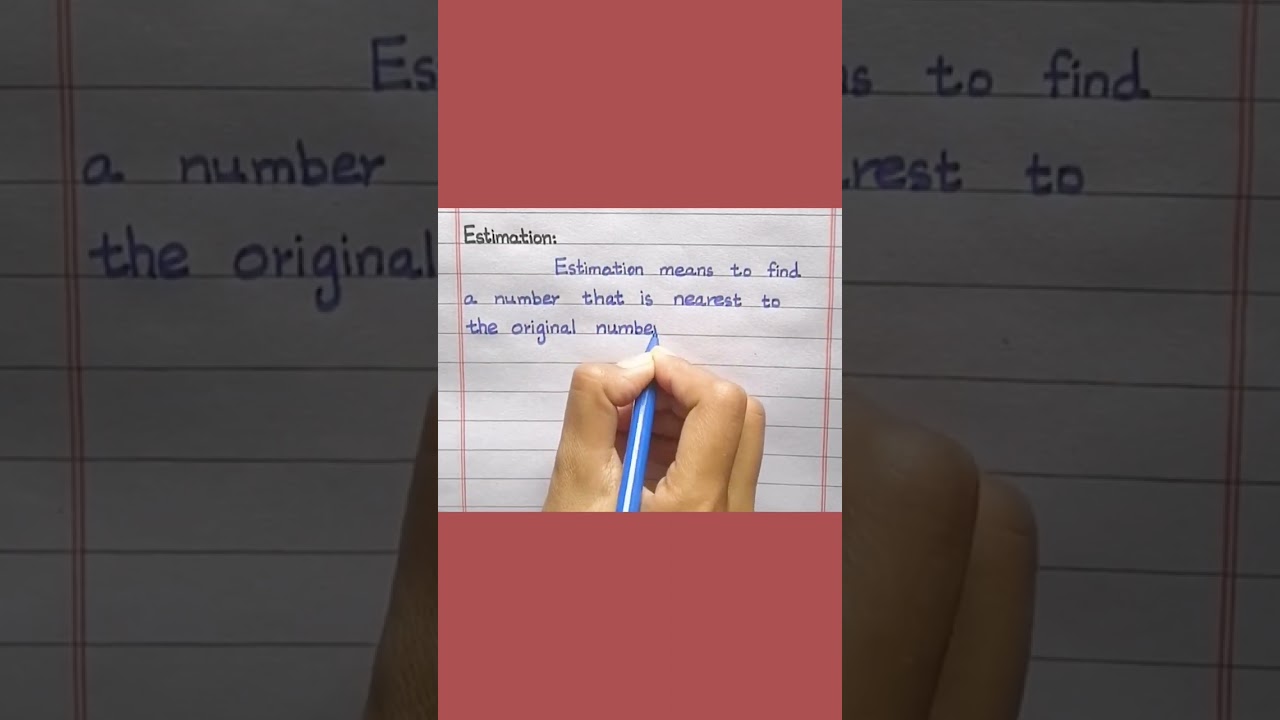 Estimation:
Estimation means to find
a number that is nearest to
the original numbe